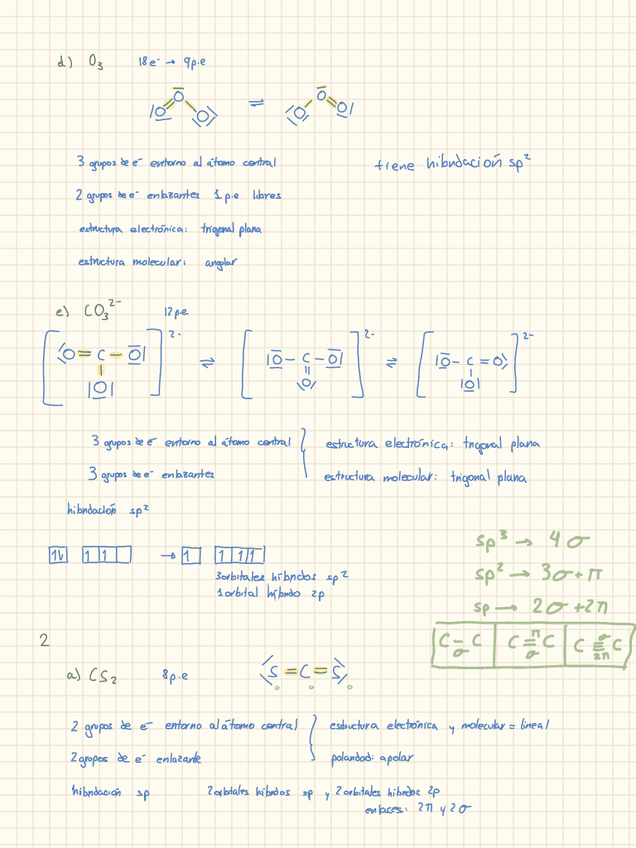 d) O₃ 18e⁻ → 9p.e
|O=O-O| ⇌ |O-O=O|
3 grupos de e⁻ entorno al átomo central
tiene hibridación sp²
2 grupos de e⁻ enlazantes 1 p.e libres
estructura electrónica: trigonal plana
estructura molecular: angular
e) CO₃²⁻ 12p.e
[O=C-O| |O|]²⁻ ⇌ [|O-C-O| O]²⁻ ⇌ [|O-C=O |O|]²⁻
3 grupos de e⁻ entorno al átomo central
estructura electrónica: trigonal plana
3 grupos de e⁻ enlazantes
estructura molecular: trigonal plana
hibridación sp²
1↓ 1 1 → 1 1 1 1
3orbitales híbridos sp²
1 orbital híbrido 2p
sp³ → 4σ
sp² → 3σ+π
sp → 2σ+2π
C-C σ C=C π σ C≡C σ 2π
2
a) CS₂ 8p.e S=C=S
2 grupos de e⁻ entorno al átomo central
estructura electrónica y molecular = lineal
2 grupos de e⁻ enlazante
polaridad: apolar
hibridación sp 2orbitales híbridos sp y 2orbitales híbridos 2p
enlaces: 2π y 2σ